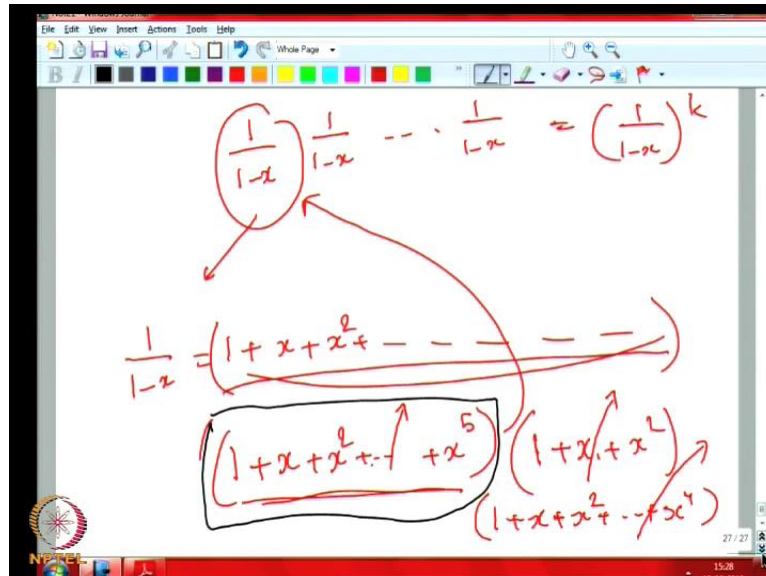 File Edit View Insert Actions Tools Help
Whole Page
B I
1/(1-x) 1/(1-x) -- . 1/(1-x) = (1/(1-x))^k
1/(1-x) = (1 + x + x^2 + - - - - - -)
(1 + x + x^2 + -- + x^5) (1 + x + x^2)
(1 + x + x^2 + -- + x^4)
27 / 27
NPTEL
15:28